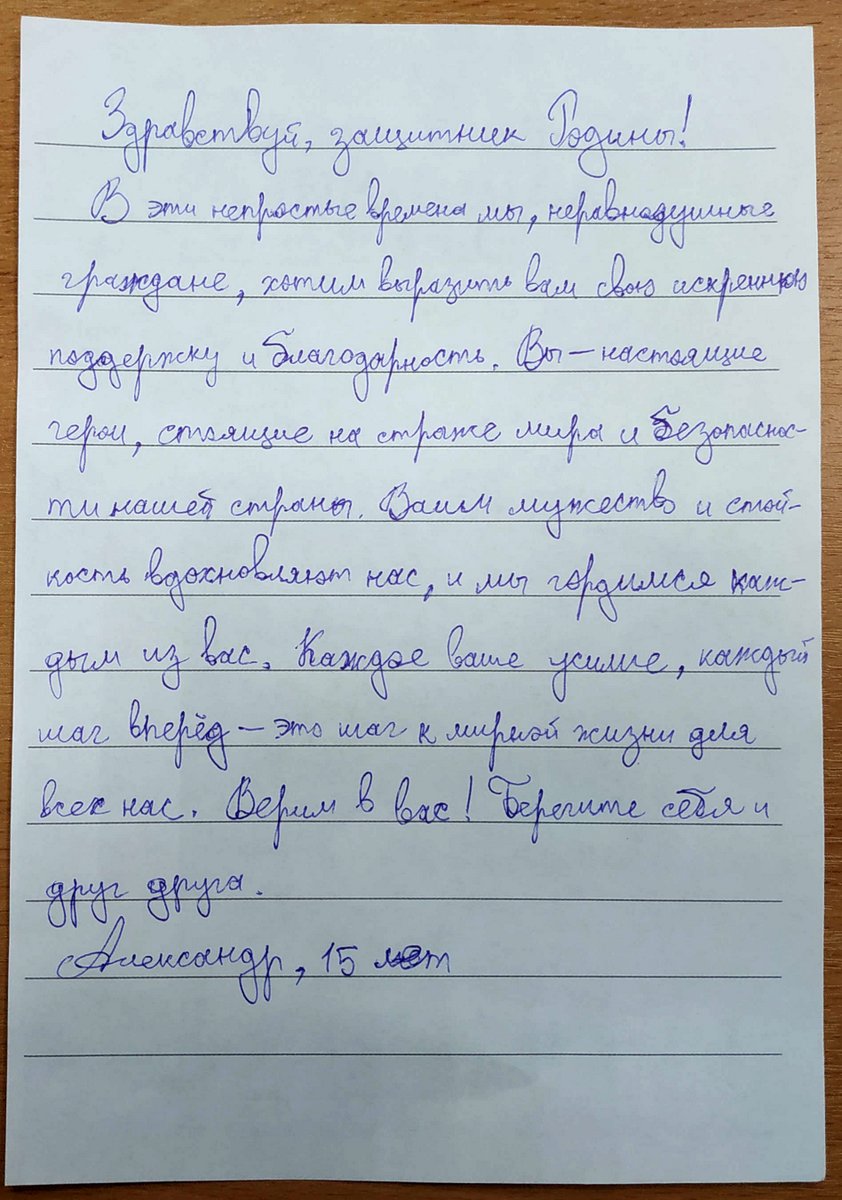 Здравствуй, защитник Родины!
В эти непростые времена мы, неравнодушные
граждане, хотим выразить вам свою искреннюю
поддержку и благодарность. Вы — настоящие
герои, стоящие на страже мира и безопаснос-
ти нашей страны. Ваши мужество и стой-
кость вдохновляют нас, и мы гордимся каж-
дым из вас. Каждое ваше усилие, каждый
шаг вперёд — это шаг к мирной жизни для
всех нас. Верим в вас! Берегите себя и
друг друга.
Александр, 15 лет